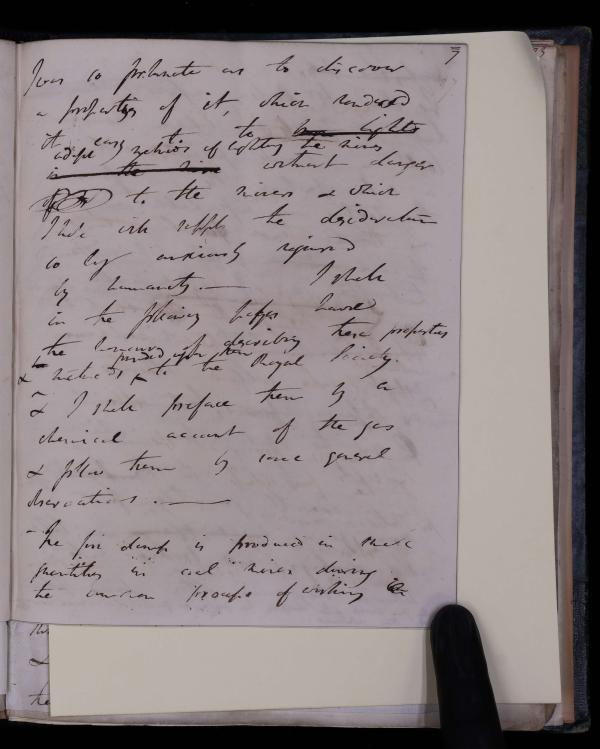 7
I was so fortunate as to discover
a properties of it, which rendered
it easy to
adapt methods of lighting the mines
in the mine without danger
to the miners & which
I hope will supply the desideratum
so long anxiously required
by humanity. — I shall
in the following pages have
the honour of describing these properties
& methods founded upon them to the Royal Society.
& I shall preface them by a
chemical account of the gas
& follow them by some general
observations. —
The fire damp is produced in small
quantities in coal mines during
the common process of working
the